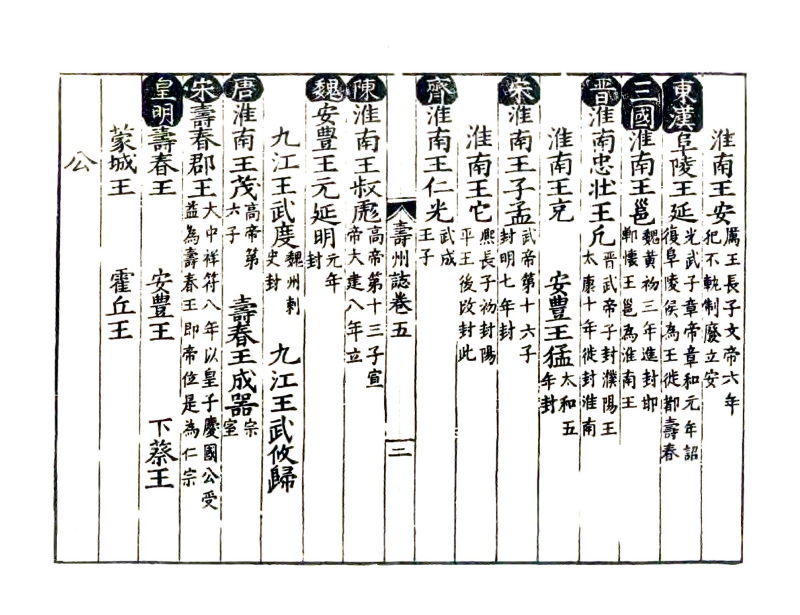 淮南王安 厲王長子文帝六年犯不軌制廢立安
東漢 阜陵王延 光武子章帝章和元年詔復阜陵侯為王徙都壽春
三國 淮南王邕 魏黃初三年進封邯鄲懷王邕為淮南王
晋 淮南忠壯王允 晋武帝子封濮陽王太康十年徙封淮南
淮南王 安豐王猛 太和五年封
宋 淮南王子孟 武帝第十六子封明七年封
淮南王它 熙長子初封陽平王後改封此
齊 淮南王仁光 武成王子
壽州誌卷五 二
陳 淮南王叔彪 高帝第十三子宣帝大建八年立
魏 安豐王元延明 元年封
九江王武度 魏州刺史封 九江王武攸歸
唐 淮南王茂 高帝第六子 壽春王成器 宗室
宋 壽春郡王 大中祥符八年以皇子慶國公受益為壽春王即帝位是為仁宗
皇明 壽春王 安豐王 下蔡王
蒙城王 霍丘王
公